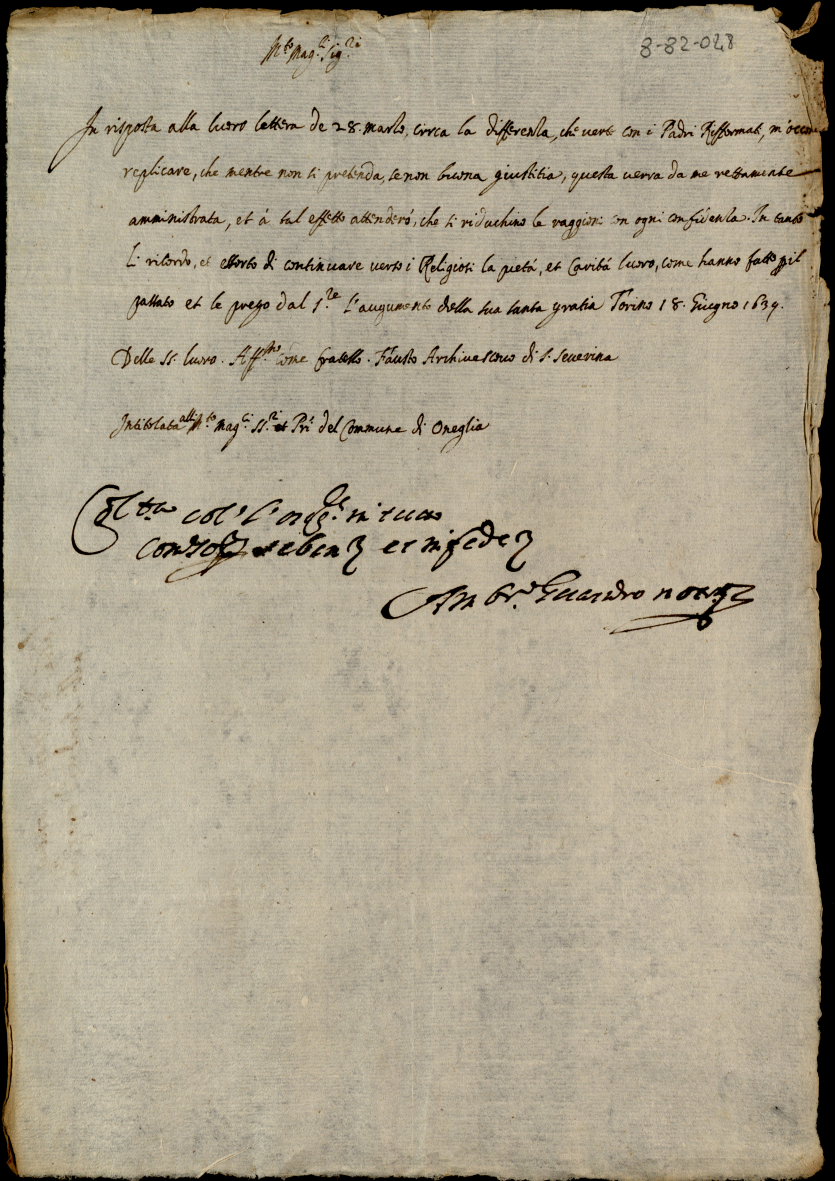 8-82-028
M.to Mag.ci Sig.ri
In risposta alla luoro lettera de 28. marzo, circa la differenza, che verte con i Padri Rifformati, m'occorre
replicare, che mentre non si pretenda, se non buona giustitia, questa verra da me rettamente
amministrata, et á tal effetto attenderó, che si riduchino le raggioni con ogni confidenza. In tanto
Li ricordo, et essorto di continuare verso i Religiosi la pietá, et Caritá luoro, come hanno fatto p il
passato et le prego dal S.re l'augumento della sua santa gratia Torino 18. Giugno 1639.
Delle SS. luoro. Aff.mo come fratello. Fausto Archivescovo di S. Severina
Intitolata alli M.to Mag.ci SS.ri et Pri del Commune di Oneglia
col
et in fede
Amb.o notr